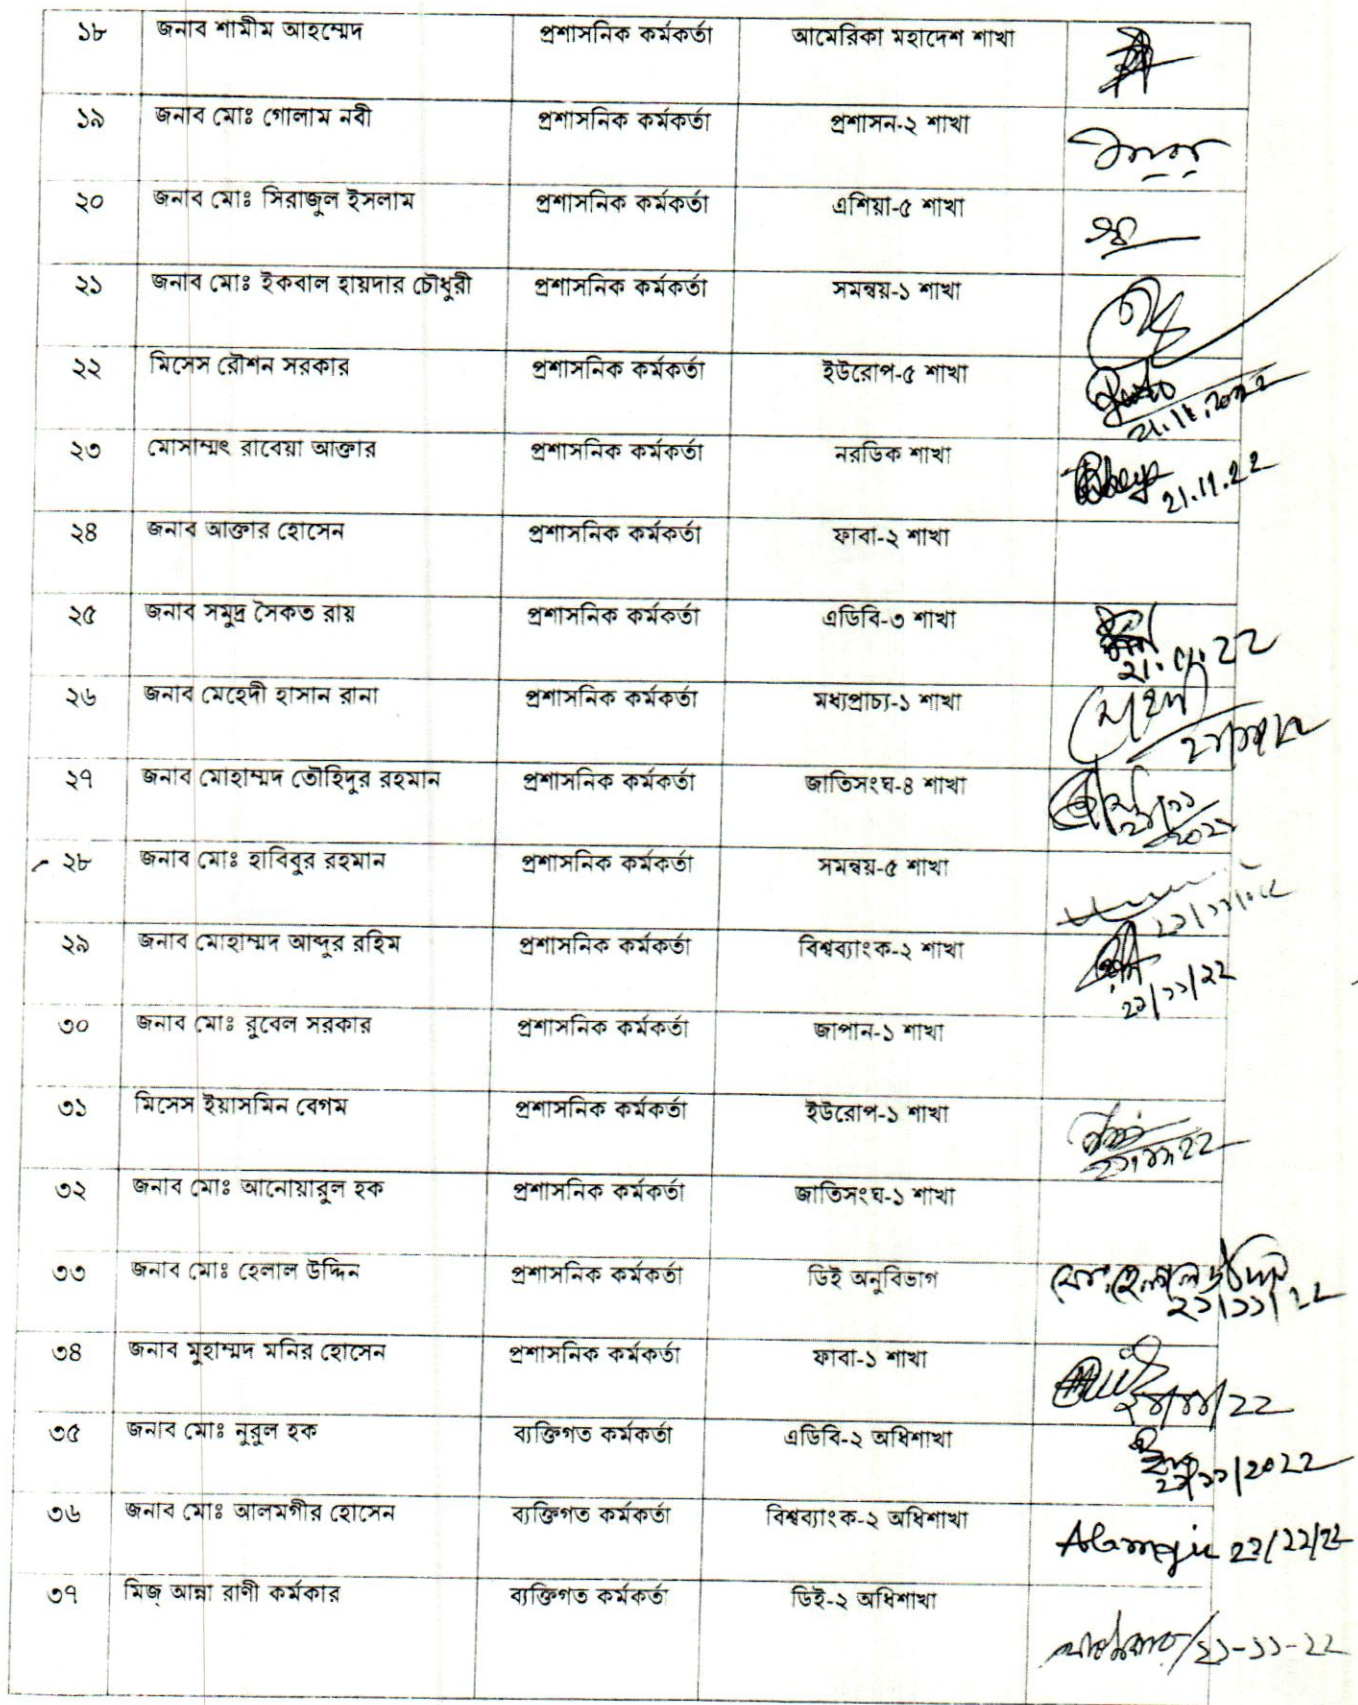 ১৮ জনাব শামীম আহম্মেদ প্রশাসনিক কর্মকর্তা আমেরিকা মহাদেশ শাখা
১৯ জনাব মোঃ গোলাম নবী প্রশাসনিক কর্মকর্তা প্রশাসন-২ শাখা
২০ জনাব মোঃ সিরাজুল ইসলাম প্রশাসনিক কর্মকর্তা এশিয়া-৫ শাখা
২১ জনাব মোঃ ইকবাল হায়দার চৌধুরী প্রশাসনিক কর্মকর্তা সমন্বয়-১ শাখা
২২ মিসেস রৌশন সরকার প্রশাসনিক কর্মকর্তা ইউরোপ-৫ শাখা
21.11.2022
২৩ মোসাম্মৎ রাবেয়া আক্তার প্রশাসনিক কর্মকর্তা নরডিক শাখা
21.11.22
২৪ জনাব আক্তার হোসেন প্রশাসনিক কর্মকর্তা ফাবা-২ শাখা
২৫ জনাব সমুদ্র সৈকত রায় প্রশাসনিক কর্মকর্তা এডিবি-৩ শাখা
21.11.22
২৬ জনাব মেহেদী হাসান রানা প্রশাসনিক কর্মকর্তা মধ্যপ্রাচ্য-১ শাখা
২৭ জনাব মোহাম্মদ তৌহিদুর রহমান প্রশাসনিক কর্মকর্তা জাতিসংঘ-৪ শাখা
২৮ জনাব মোঃ হাবিবুর রহমান প্রশাসনিক কর্মকর্তা সমন্বয়-৫ শাখা
২৯ জনাব মোহাম্মদ আব্দুর রহিম প্রশাসনিক কর্মকর্তা বিশ্বব্যাংক-২ শাখা
২১/১১/২২
৩০ জনাব মোঃ রুবেল সরকার প্রশাসনিক কর্মকর্তা জাপান-১ শাখা
৩১ মিসেস ইয়াসমিন বেগম প্রশাসনিক কর্মকর্তা ইউরোপ-১ শাখা
৩২ জনাব মোঃ আনোয়ারুল হক প্রশাসনিক কর্মকর্তা জাতিসংঘ-১ শাখা
৩৩ জনাব মোঃ হেলাল উদ্দিন প্রশাসনিক কর্মকর্তা ডিই অনুবিভাগ মোঃ হেলাল উদ্দিন
২১/১১/২২
৩৪ জনাব মুহাম্মদ মনির হোসেন প্রশাসনিক কর্মকর্তা ফাবা-১ শাখা
৩৫ জনাব মোঃ নুরুল হক ব্যক্তিগত কর্মকর্তা এডিবি-২ অধিশাখা
২১/১১/2022
৩৬ জনাব মোঃ আলমগীর হোসেন ব্যক্তিগত কর্মকর্তা বিশ্বব্যাংক-২ অধিশাখা Alamgir
৩৭ মিজ্ আন্না রাণী কর্মকার ব্যক্তিগত কর্মকর্তা ডিই-২ অধিশাখা ২১-১১-২২